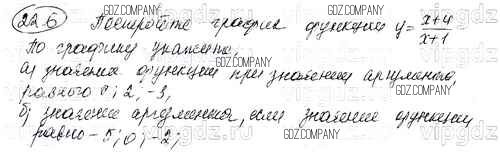 226 Постройте график функции y = x+4/x+1
По графику укажите:
а) значение функции при значении аргумента,
равного 2; -3,
б) значение аргумента, если значение функции
равно - 0; -2;
GDZ.COMPANY
vipgdz